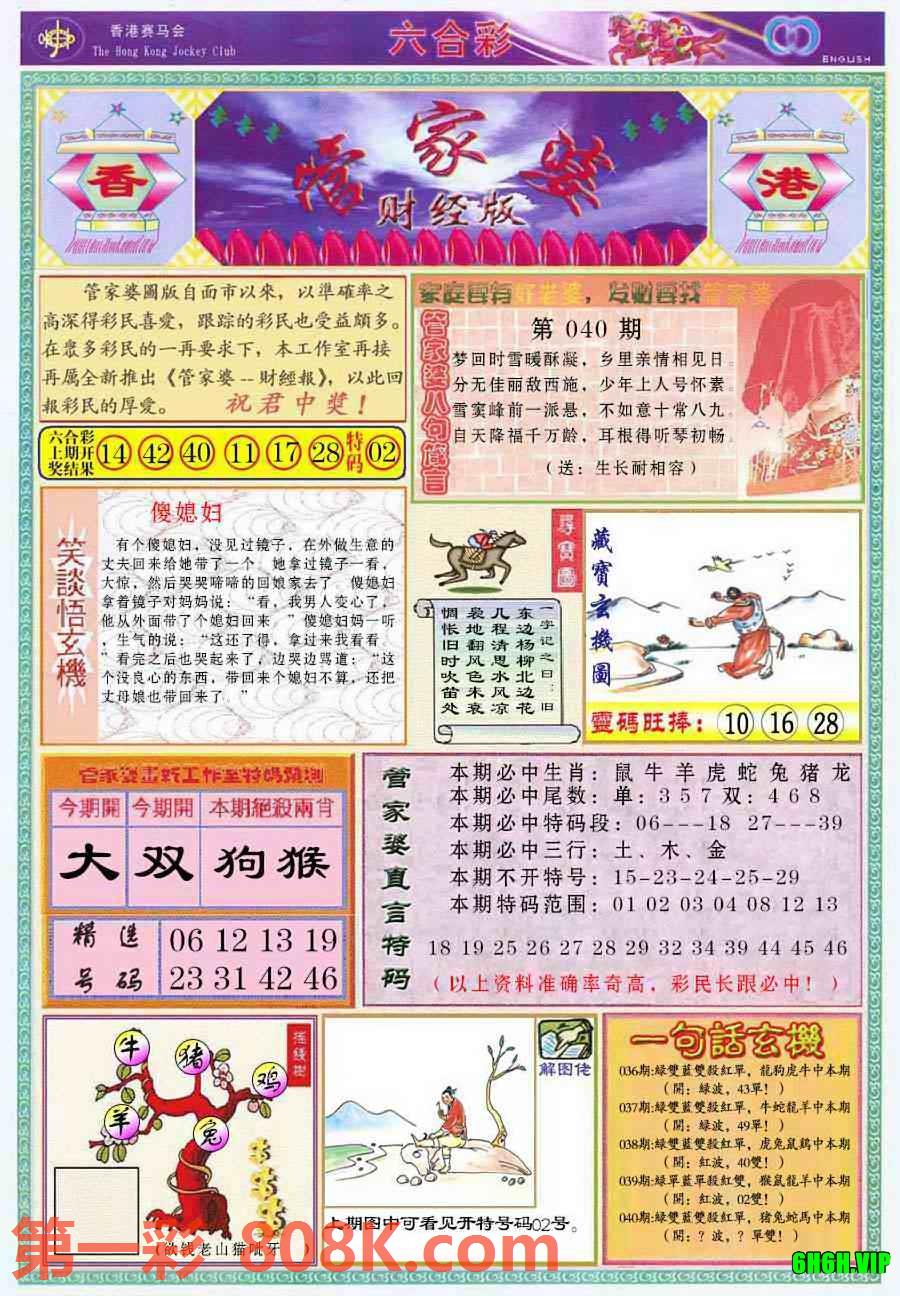 香港赛马会
The Hong Kong Jockey Club
六合彩
ENGLISH
香
管家婆
财经版
港
管家婆圖版自面市以來，以準確率之
高深得彩民喜愛，跟踪的彩民也受益頗多。
在眾多彩民的一再要求下，本工作室再接
再属全新推出《管家婆--財經報》，以此回
報彩民的厚愛。 祝君中獎！
六合彩
上期开
奖结果
14 42 40 11 17 28
特码
02
家庭要有好老婆，发财要找管家婆
管家婆八句箴言
第 040 期
梦回时雪暖酥凝，乡里亲情相见日。
分无佳丽敌西施，少年上人号怀素。
雪窦峰前一派悬，不如意十常八九。
自天降福千万龄，耳根得听琴初畅。
（送：生长耐相容）
笑談悟玄機
傻媳妇
有个傻媳妇，没见过镜子，在外做生意的
丈夫回来给她带了一个。她拿过镜子一看，
大惊，然后哭哭啼啼的回娘家去了。傻媳妇
拿着镜子对妈妈说：“看，我男人变心了，
他从外面带了个媳妇回来。”傻媳妇妈一听
，生气的说：“这还了得，拿过来我看看。
”看完之后也哭起来了，边哭边骂道：“这
个没良心的东西，带回来个媳妇不算，还把
丈母娘也带回来了。”
尋寶圖
一字记之曰：旧
东边杨柳北边花
几程清思水风凉
袅地翻风色未衰
惆怅旧时吹笛处
藏寶玄機圖
靈碼旺捧：10 16 28
管家婆画新工作室特码预测
今期開 今期開 本期絕殺兩肖
大 双 狗猴
精选
号码
06 12 13 19
23 31 42 46
管家婆直言特码
本期必中生肖：鼠牛羊虎蛇兔猪龙
本期必中尾数：单：357双：468
本期必中特码段：06---18 27---39
本期必中三行：土、木、金
本期不开特号：15-23-24-25-29
本期特码范围：01 02 03 04 08 12 13
18 19 25 26 27 28 29 32 34 39 44 45 46
（以上资料准确率奇高，彩民长跟必中！）
摇錢樹
牛
猪
鸡
羊
兔
（欲钱老山猫呲牙）
解图佬
上期图中可看见开特号码02号。
一句話玄機
036期:綠雙藍雙殺紅單，龍狗虎牛中本期
（開：綠波，43單！）
037期:綠雙藍雙殺紅單，牛蛇龍羊中本期
（開：綠波，49單！）
038期:綠雙藍雙殺紅單，虎兔鼠鷄中本期
（開：紅波，40雙！）
039期:綠單藍單殺紅雙，猴鼠龍羊中本期
（開：紅波，02雙！）
040期:綠雙藍雙殺紅單，猪兔蛇馬中本期
（開：？波，？單雙！）
第一彩 808K.com
6H6H.VIP